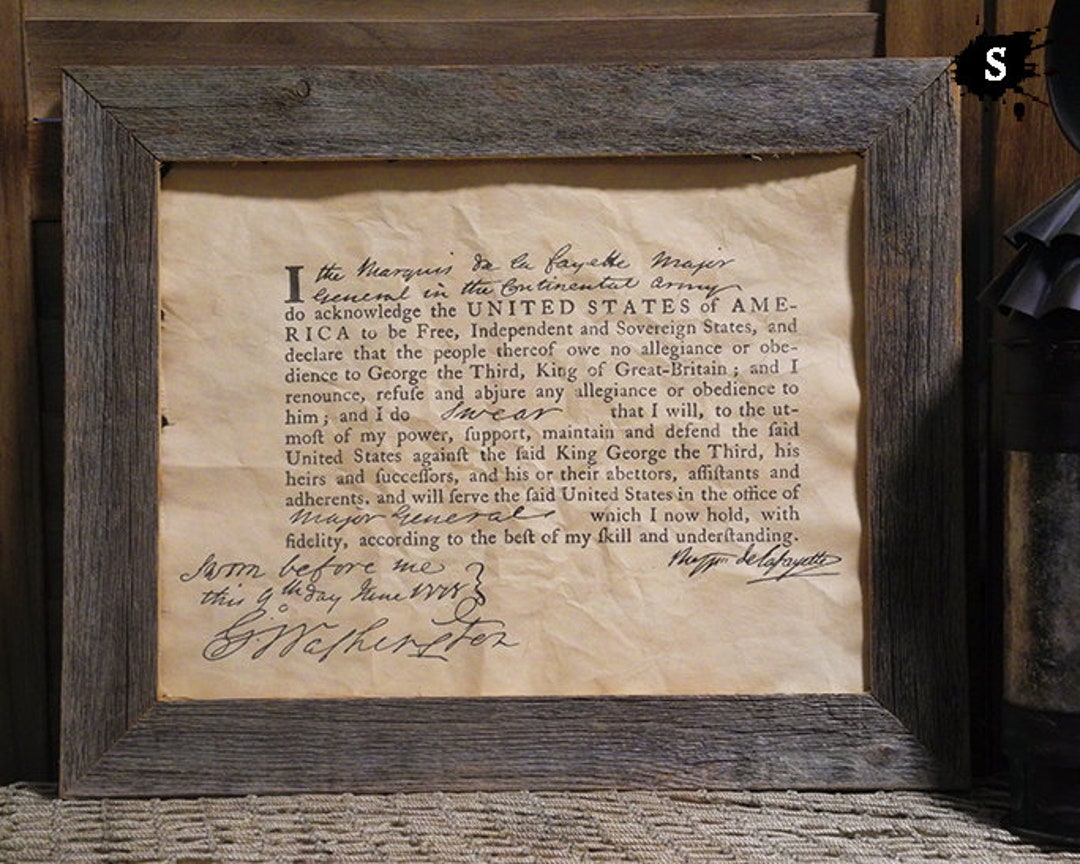 S
I the Marquis de la fayette Major
General in the Continental Army
do acknowledge the UNITED STATES of AME-
RICA to be Free, Independent and Sovereign States, and
declare that the people thereof owe no allegiance or obe-
dience to George the Third, King of Great-Britain ; and I
renounce, refuſe and abjure any allegiance or obedience to
him ; and I do swear that I will, to the ut-
moſt of my power, ſupport, maintain and defend the ſaid
United States againſt the ſaid King George the Third, his
heirs and ſucceſſors, and his or their abettors, aſſiſtants and
adherents, and will ſerve the ſaid United States in the office of
Major General which I now hold, with
fidelity, according to the beſt of my ſkill and underſtanding.
de Lafayette
Sworn before me
this 9th day June 1778
G:Washington